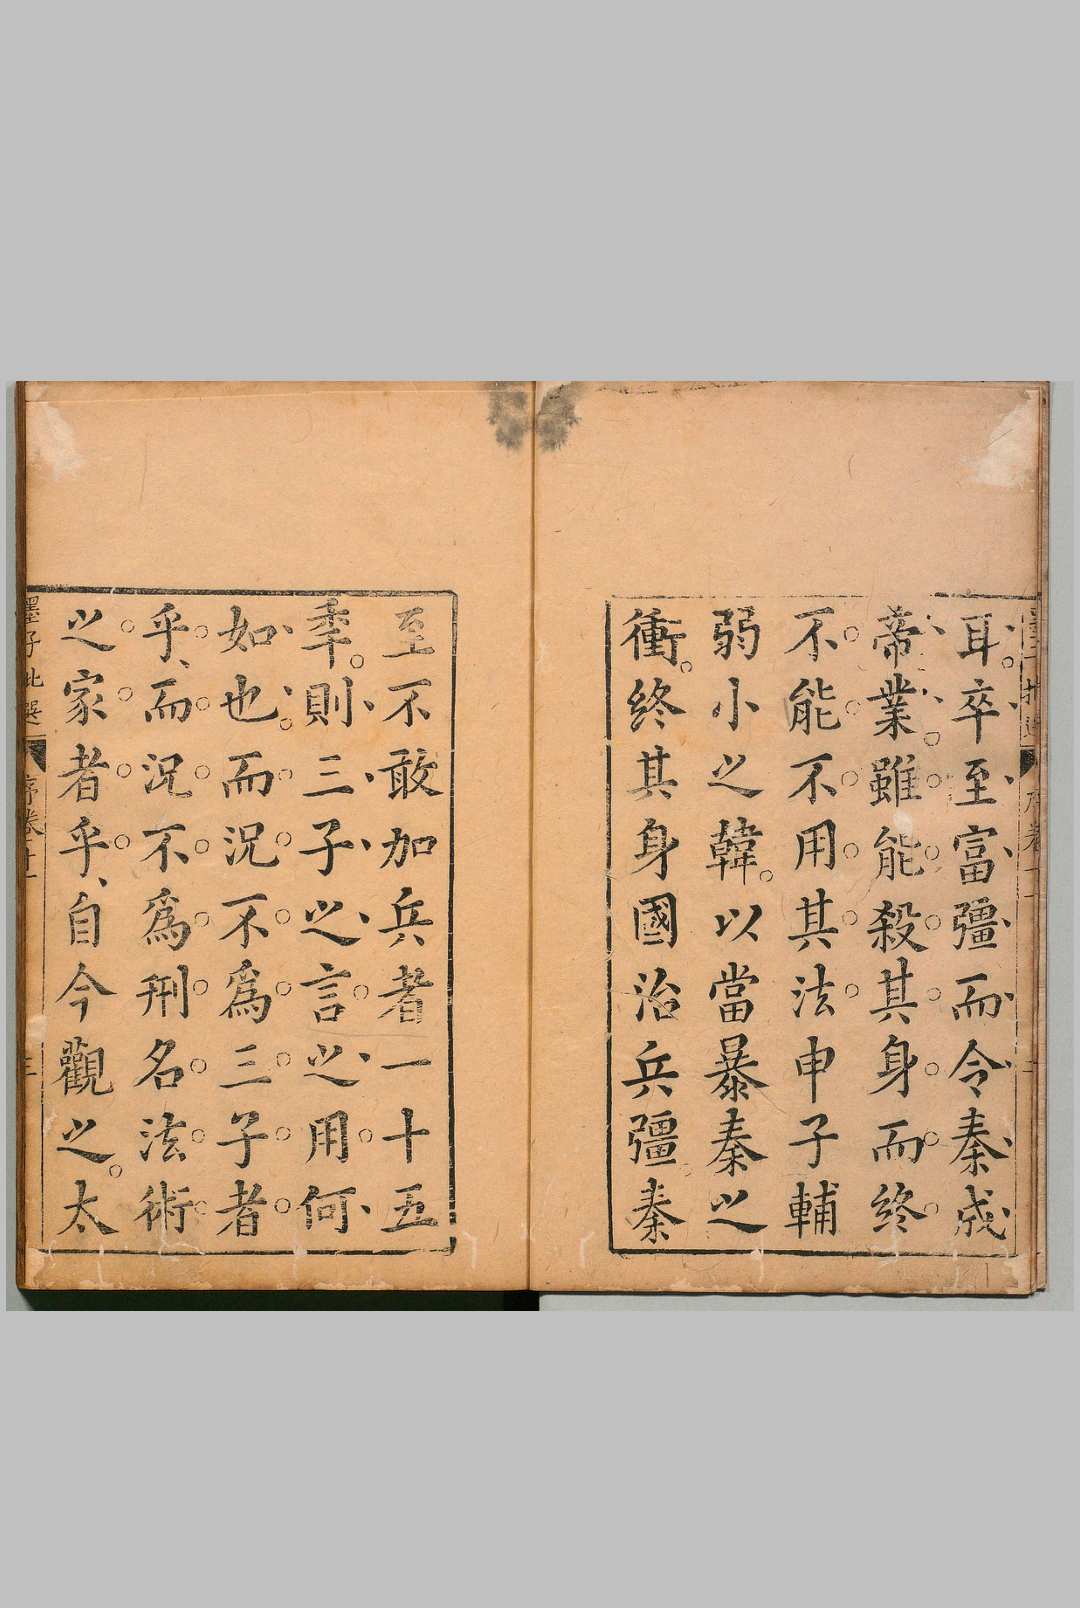 耳卒至富彊而令秦成
帝業雖能殺其身而終
不能不用其法申子輔
弱小之韓以當暴秦之
衝終其身國治兵彊秦
至不敢加兵者一十五
秊則三子之言之用何
如也而況不爲三子者
乎而況不爲刑名法術
之家者乎自今觀之太
墨子批選
序卷
三